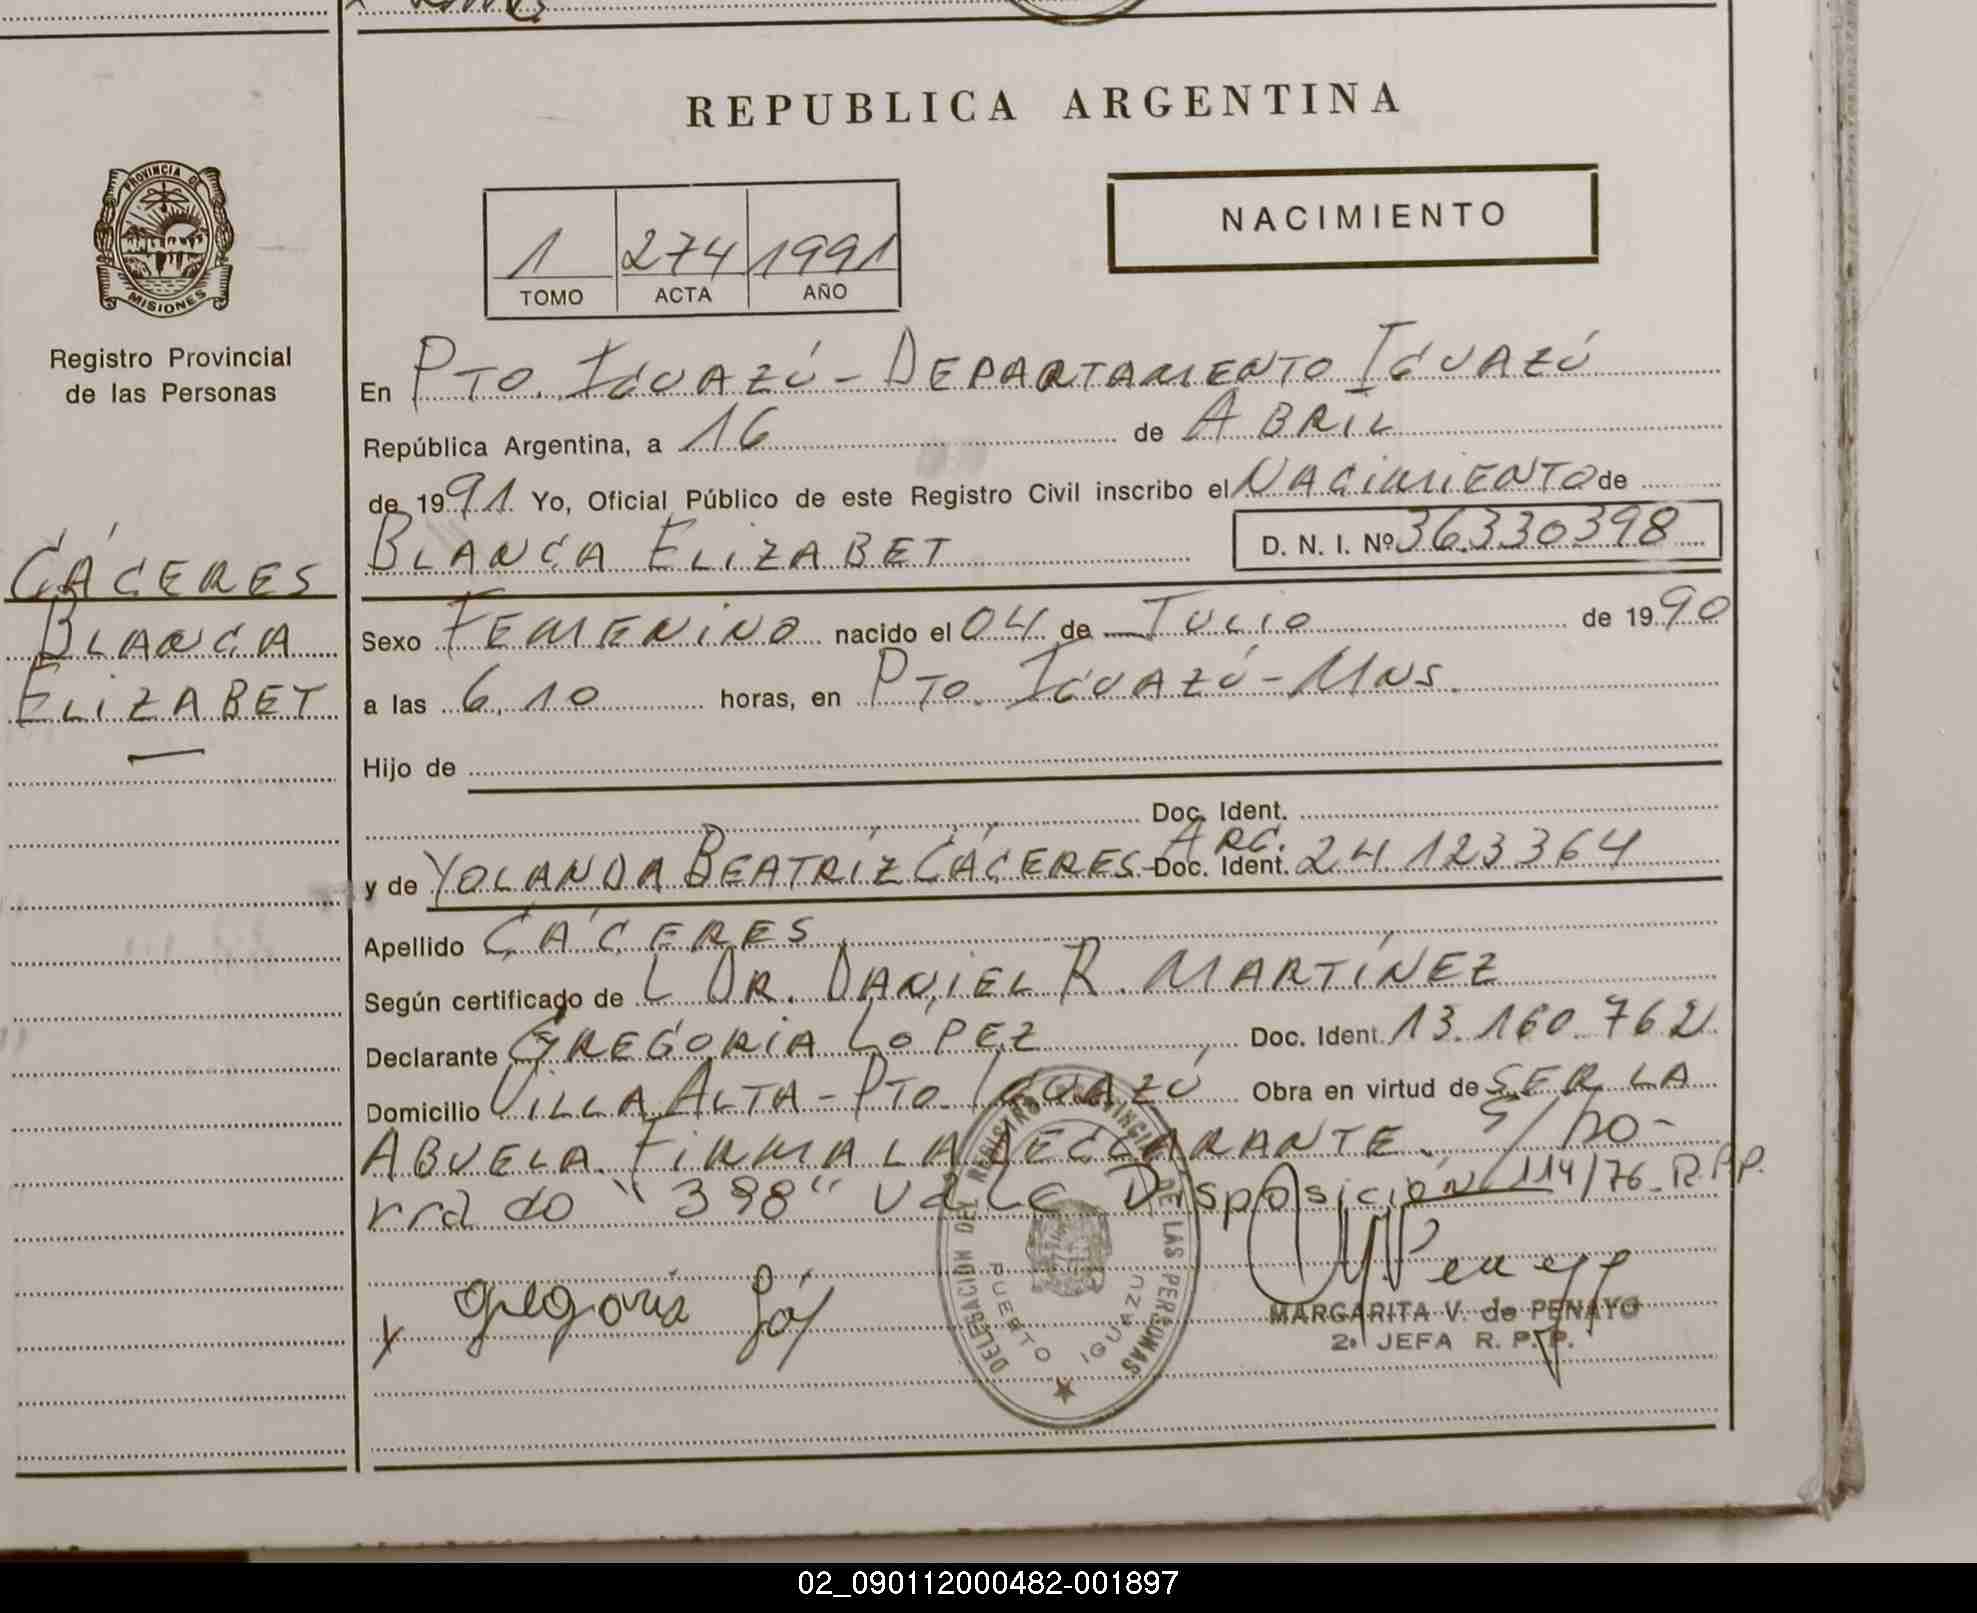 REPUBLICA ARGENTINA
PROVINCIA DE
MISIONES
Registro Provincial
de las Personas
CÁCERES
BLANCA
ELIZABET
NACIMIENTO
1 274 1991
TOMO ACTA AÑO
En PTO. IGUAZÚ - DEPARTAMENTO IGUAZÚ
República Argentina, a 16 de ABRIL
de 1991 Yo, Oficial Público de este Registro Civil inscribo el NACIMIENTO de
BLANCA ELIZABET D. N. I. Nº 36.330398
Sexo FEMENINO nacido el 04 de JULIO de 1990
a las 6,10 horas, en PTO. IGUAZÚ - MNS.
Hijo de
Doc. Ident.
y de YOLANDA BEATRÍZ CÁCERES - Doc. Ident. ARG. 24.123364
Apellido CÁCERES
Según certificado de L DR. DANIEL R. MARTÍNEZ
Declarante GREGORIA LOPEZ Doc. Ident. 13.160.762
Domicilio VILLA ALTA - PTO. IGUAZÚ Obra en virtud de SER LA
ABUELA. FIRMA LA DECLARANTE. S/ bo-
rrado "398" vale Disposición 114/76 R.P.P.
x Gregoria
DELEGACION DEL REGISTRO PROVINCIAL DE LAS PERSONAS
PUERTO IGUAZU
MARGARITA V. de PENAYO
2º JEFA R. P. P.
02_090112000482-001897